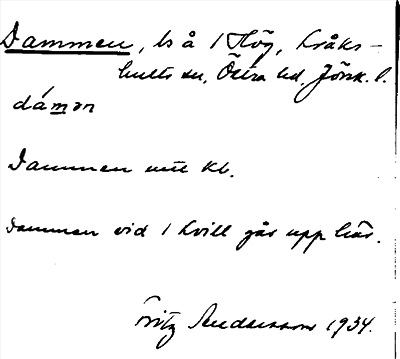 Dammen, ls å 1 Hög, Kråks-
hults sn, Östra hd. Jönk. l.
dámən
Dammen utt kl.
Dammen vid 1 kvill går upp här.
Fritz Andersson 1934.